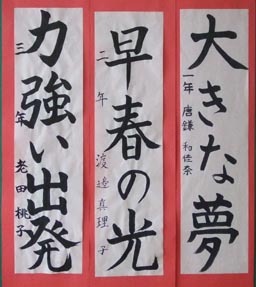 大きな夢
一年 唐鎌 和佳奈
早春の光
二年 渡邉真理子
力強い出発
三年 老田桃子